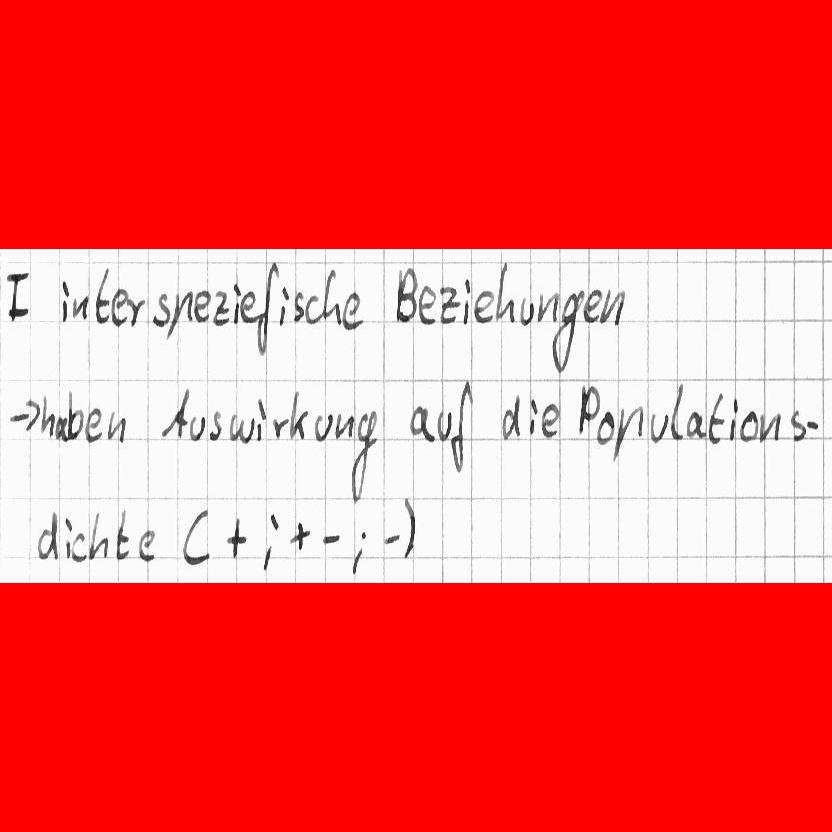 I interspeziefische Beziehungen
→haben Auswirkung auf die Populations-
dichte (+;+-;-)